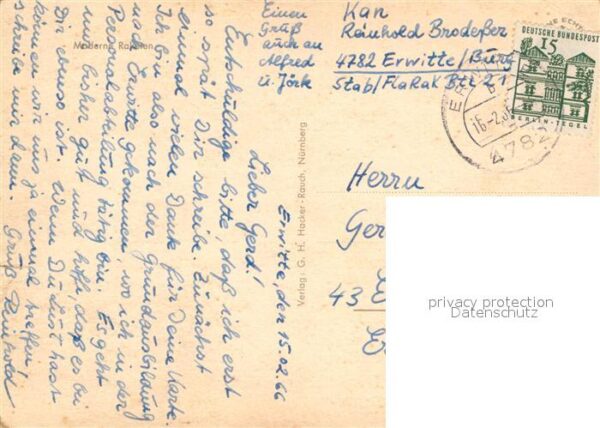 Moderne Raketen
Erwitte, den 15.02.66
Lieber Gerd!
Entschuldige bitte, daß ich erst
so spät Dir schreibe. Zunächst
einmal vielen Dank für Deine Karte.
Ich bin also nach der Grundausbildung
nach Erwitte gekommen, wo ich in der
Personalabteilung tätig bin. Es geht
mir bisher gut und hoffe, daß es bei
Dir ebenso ist. Wenn Du Lust hast
können wir uns ja einmal treffen!
Schreibe mir dann. Gruß Reinhold
Einen
Gruß
auch an
Alfred
u. Jörk
Kan
Reinhold Brodeßer
4782 Erwitte/Burg
Stab/FlaRak Btl 21
Verlag: G. H. Hacker-Rauch, Nürnberg
DEUTSCHE BUNDESPOST
15
BERLIN-TEGEL
16.-2.
4782
Herrn
43
privacy protection
Datenschutz